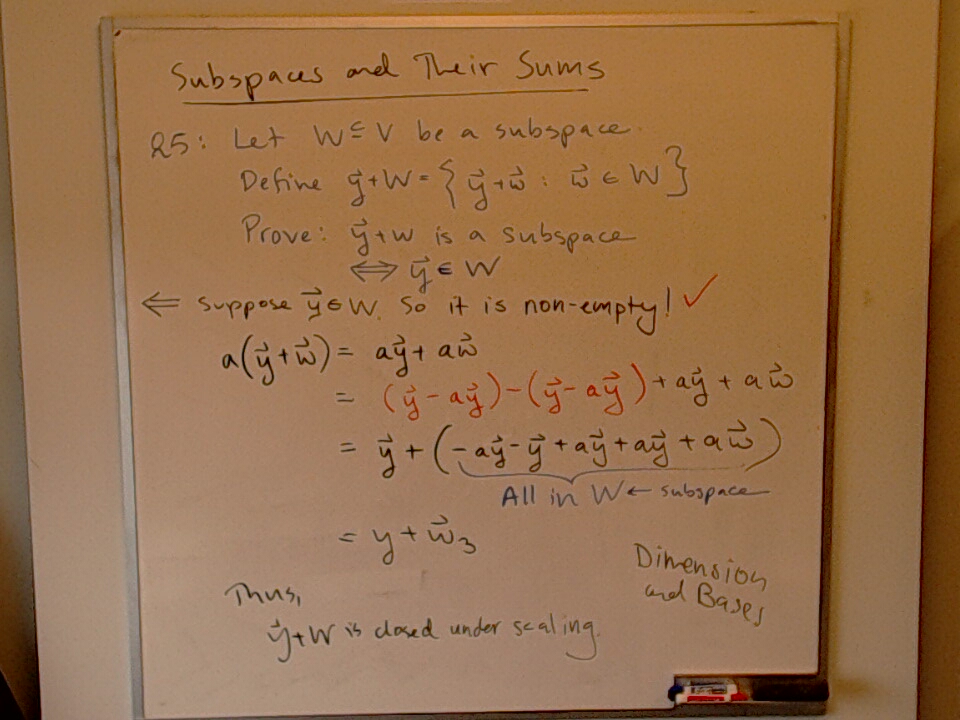 Subspaces and Their Sums
Q5: Let W ⊆ V be a subspace.
Define y⃗+W = { y⃗+w⃗ : w⃗ ∈ W }
Prove: y⃗+W is a subspace
⟺ y⃗ ∈ W
⟸ Suppose y⃗ ∈ W. So it is non-empty! ✓
a(y⃗+w⃗) = ay⃗ + aw⃗
= (y⃗ - ay⃗) - (y⃗ - ay⃗) + ay⃗ + aw⃗
= y⃗ + (-ay⃗ - y⃗ + ay⃗ + ay⃗ + aw⃗)
All in W ← subspace
= y + w⃗₃
Thus,
y⃗+W is closed under scaling.
Dimension
and Bases